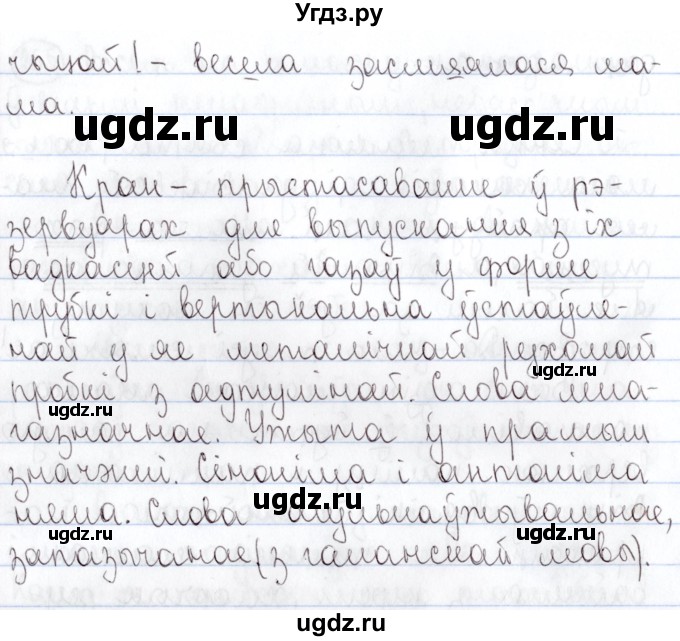 Угдз.ру
чыцай! – весела засмяялася ма-
ма.
ugdz.ru ugdz.ru
Кран – прыстасаванне ў рэ-
зервуарах для выпускання з іх
вадкасцей або газаў у форме
ugdz.ru
трубкі і вертыкальна ўстаўле-
най у яе металічнай рухомай
ugdz.ru
пробкі з адтулінай. Слова мна-
ugdz.ru
газначнае. Ужыта у прамым
значэнні. Сіноніма і антоніма
няма. Слова агульнаўжывальнае,
ugdz.ru
запазычанае (з галанскай мовы).
ugdz.ru